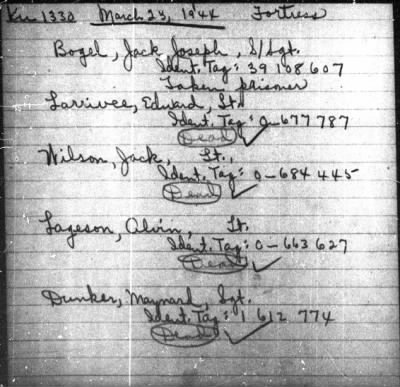 Ku 1330 March 23, 1944 Fortress
Bogel, Jack Joseph, S/Sgt.
Ident. Tag: 39 108 607
Taken prisoner
Larrivee, Edward, Lt.
Ident. Tag: 0-677 787
Dead
Wilson, Jack, Lt.,
Ident. Tag: 0-684 445
Dead
Lageson, Alvin, Lt.
Ident. Tag: 0-663 627
Dead
Dunker, Maynard, Sgt.
Ident. Tag: 1 612 774
Dead